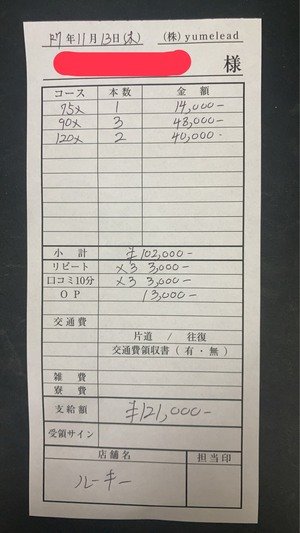 R7年11月13日(木) (株) yumelead
様
コース 本数 金額
75× 1 14,000-
90× 3 48,000-
120× 2 40,000-
小計 ¥102,000-
リピート ×3 3,000-
口コミ10分 ×3 3,000-
OP 13,000-
交通費
片道 / 往復
交通費領収書 (有・無)
雑費
寮費
支給額 ¥121,000-
受領サイン
店舗名 担当印
ルーキー